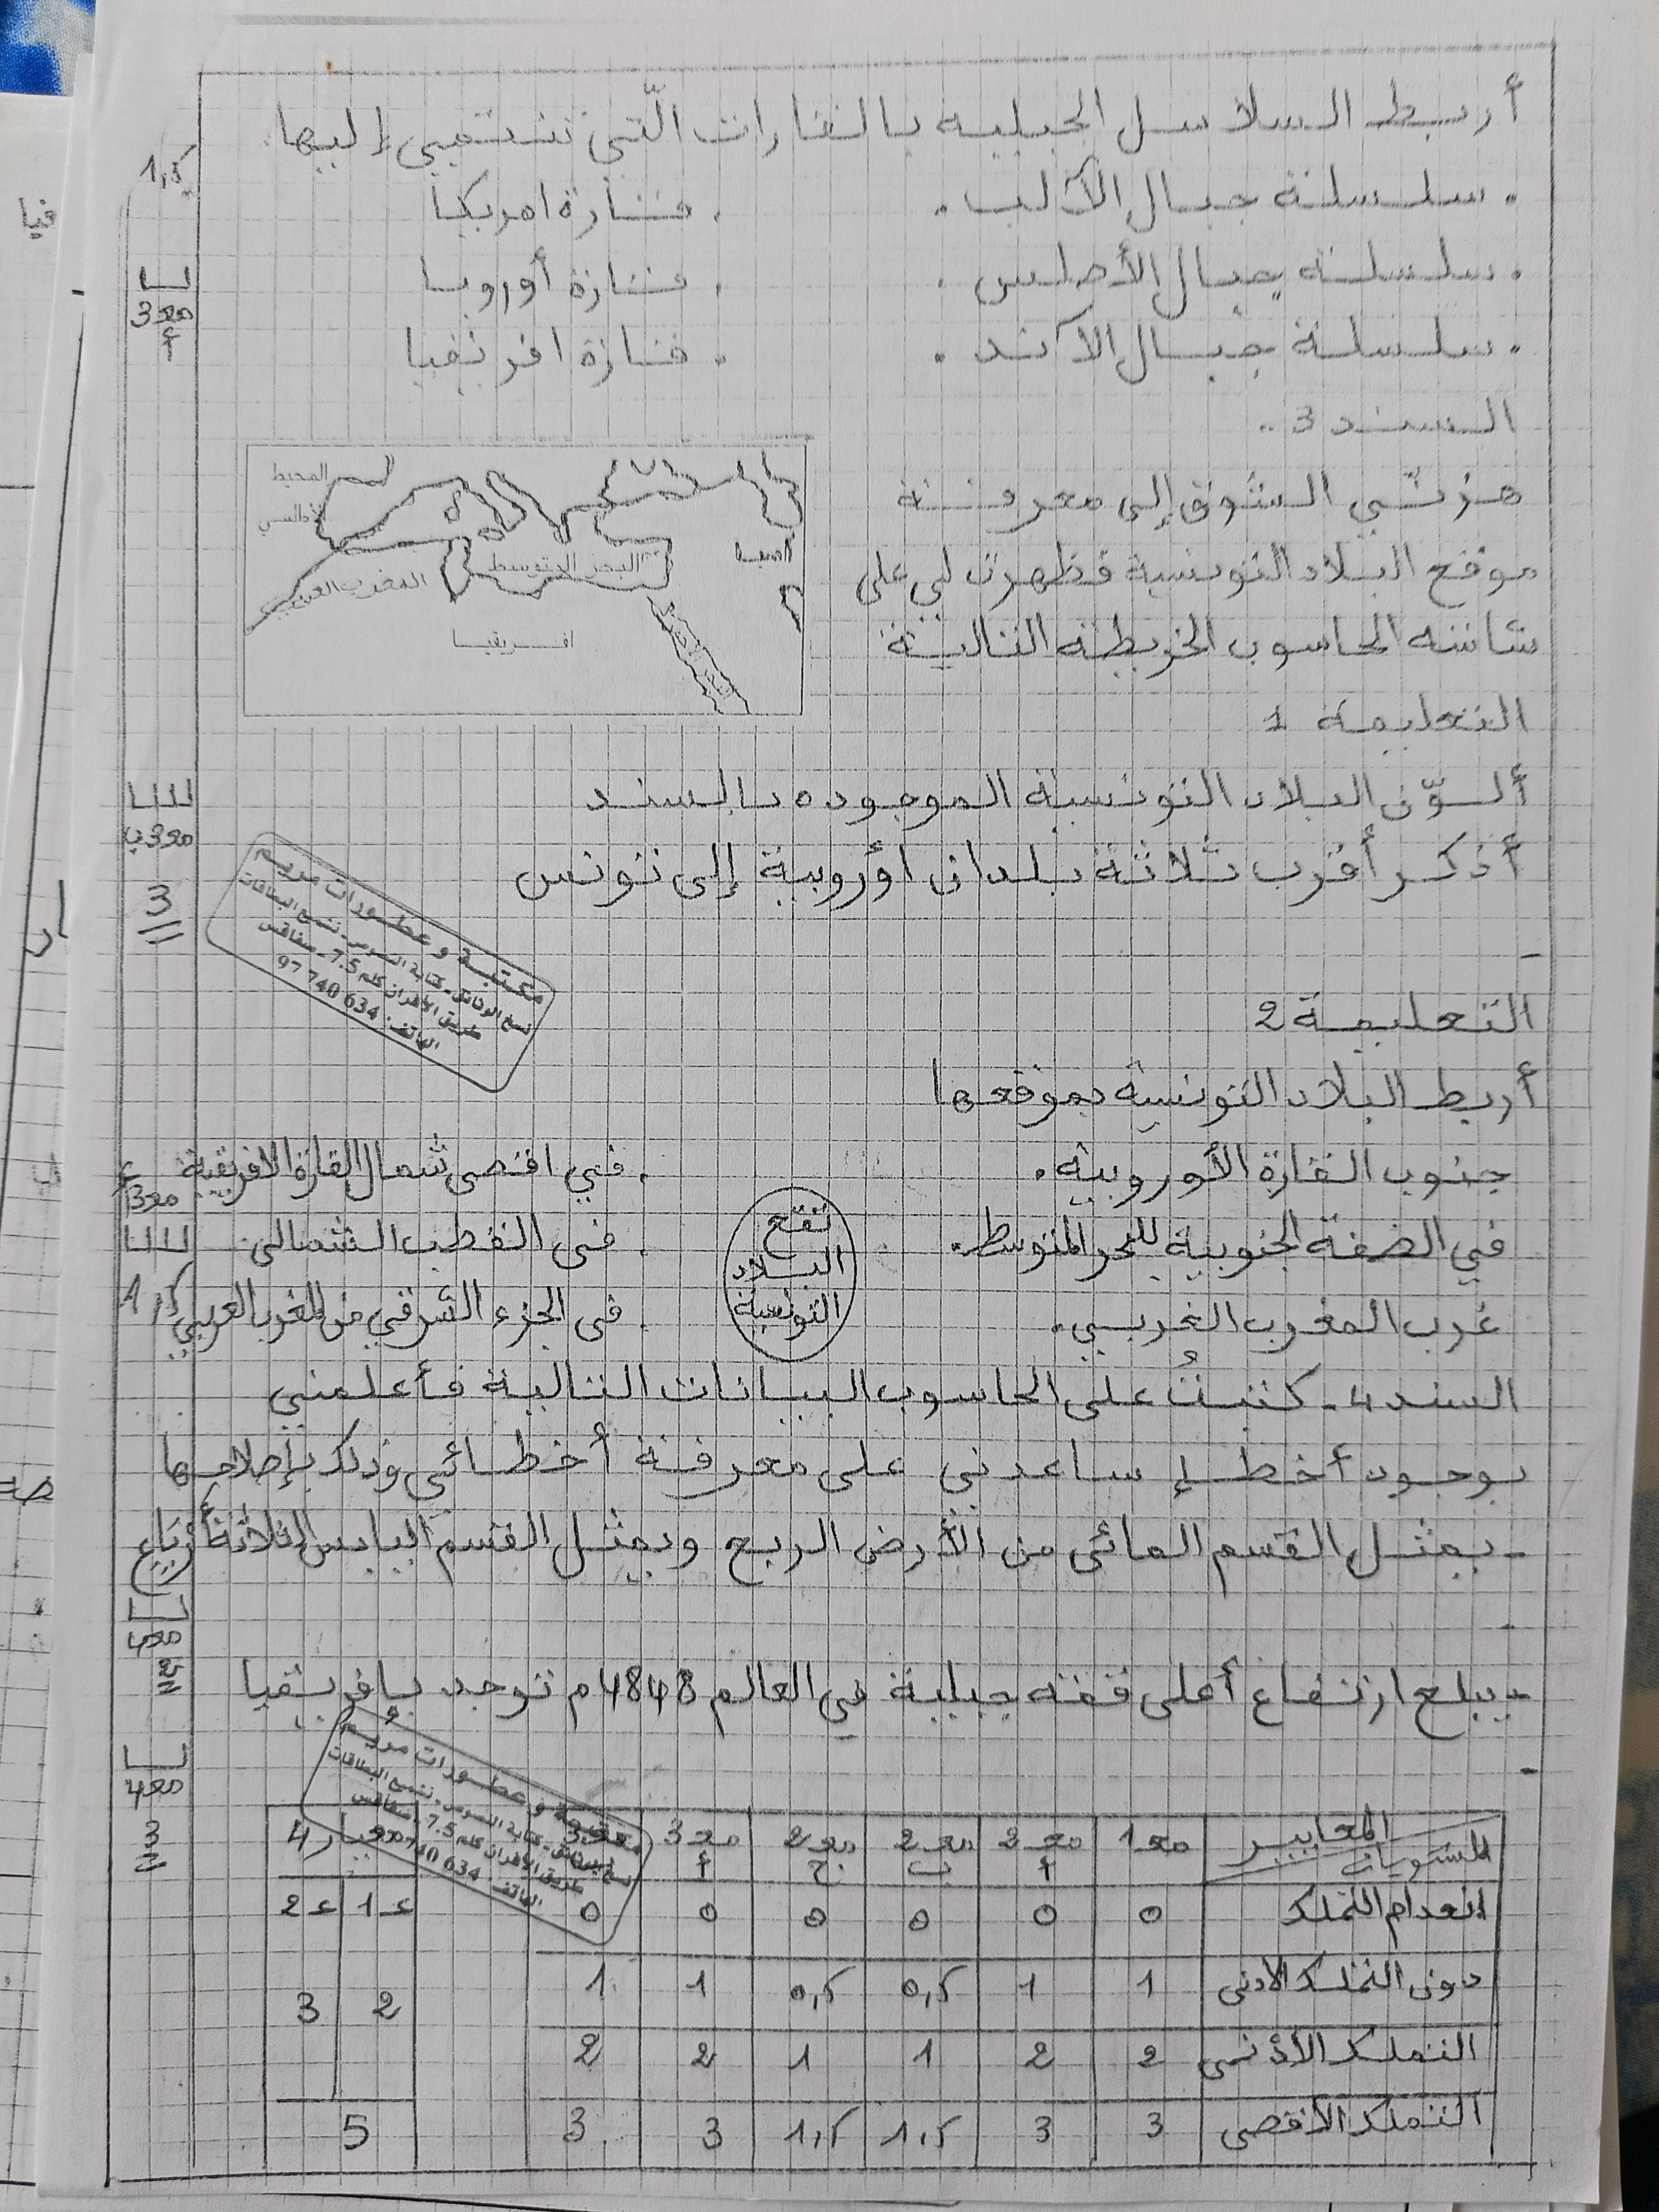 أربط السلاسل الجبلية بالقارات الّتي تنتمي إليها
1,5
. سلسلة جبال الألب . . قارة امريكيا
. سلسلة جبال الأطلس . . قارة أوروبا
. سلسلة جبال الاند . . قارة افريقيا
مع3
أ
السند 3 ..
هزني الشوق إلى معرفة
موقع البلاد التونسية فظهرت لي على
شاشة الحاسوب الخريطة التالية
المحيط
الأطلسي
البحر المتوسط
المغرب العربي
آسيا
افريقيا
التعليمة 1
ألوّن البلاد التونسية الموجودة بالسند
أذكر أقرب ثلاثة بلدان أوروبية إلى تونس
مع3ب
3
مكتبة و عطورات مريم
نسخ الوثائق - كتابة النصوص - نسخ البطاقات
طريق الأفران كلم 7.5 - صفاقس
الهاتف : 97 740 634
-
التعليمة 2
أربط البلاد التونسية بموقعها
جنوب القارة الأوروبية . . في اقصى شمال القارة الافريقية
في الضفة الجنوبية للبحر المتوسط . . في القطب الشمالي
غرب المغرب الغربي . . في الجزء الشرقي من المغرب العربي
تقع
البلاد
التونسية
1,5
السند 4 - كتبتُ على الحاسوب البيانات التالية فأعلمني
بوجود أخطاء ساعدني على معرفة أخطائي وذلك بإصلاحها
- يمثل القسم المائي من الأرض الربع ويمثل القسم اليابس الثلاثة أرباع
-
مع4
2
- يبلغ ارتفاع أعلى قمة جبلية في العالم 4848م توجد بإفريقيا
-
مع4
3
مكتبة و عطورات مريم
نسخ الوثائق - كتابة النصوص - نسخ البطاقات
طريق الأفران كلم 7.5 - صفاقس
الهاتف : 97 740 634
المعايير
المستويات
مع1 مع2 أ مع2 ب مع2 ج مع3 أ مع3 معيار 4
انعدام التملك 0 0 0 0 0 0 ع1 ع2
دون التملك الادنى 1 1 0,5 0,5 1 1 2 3
التملك الأدنى 2 2 1 1 2 2
التملك الأقصى 3 3 1,5 1,5 3 3 5